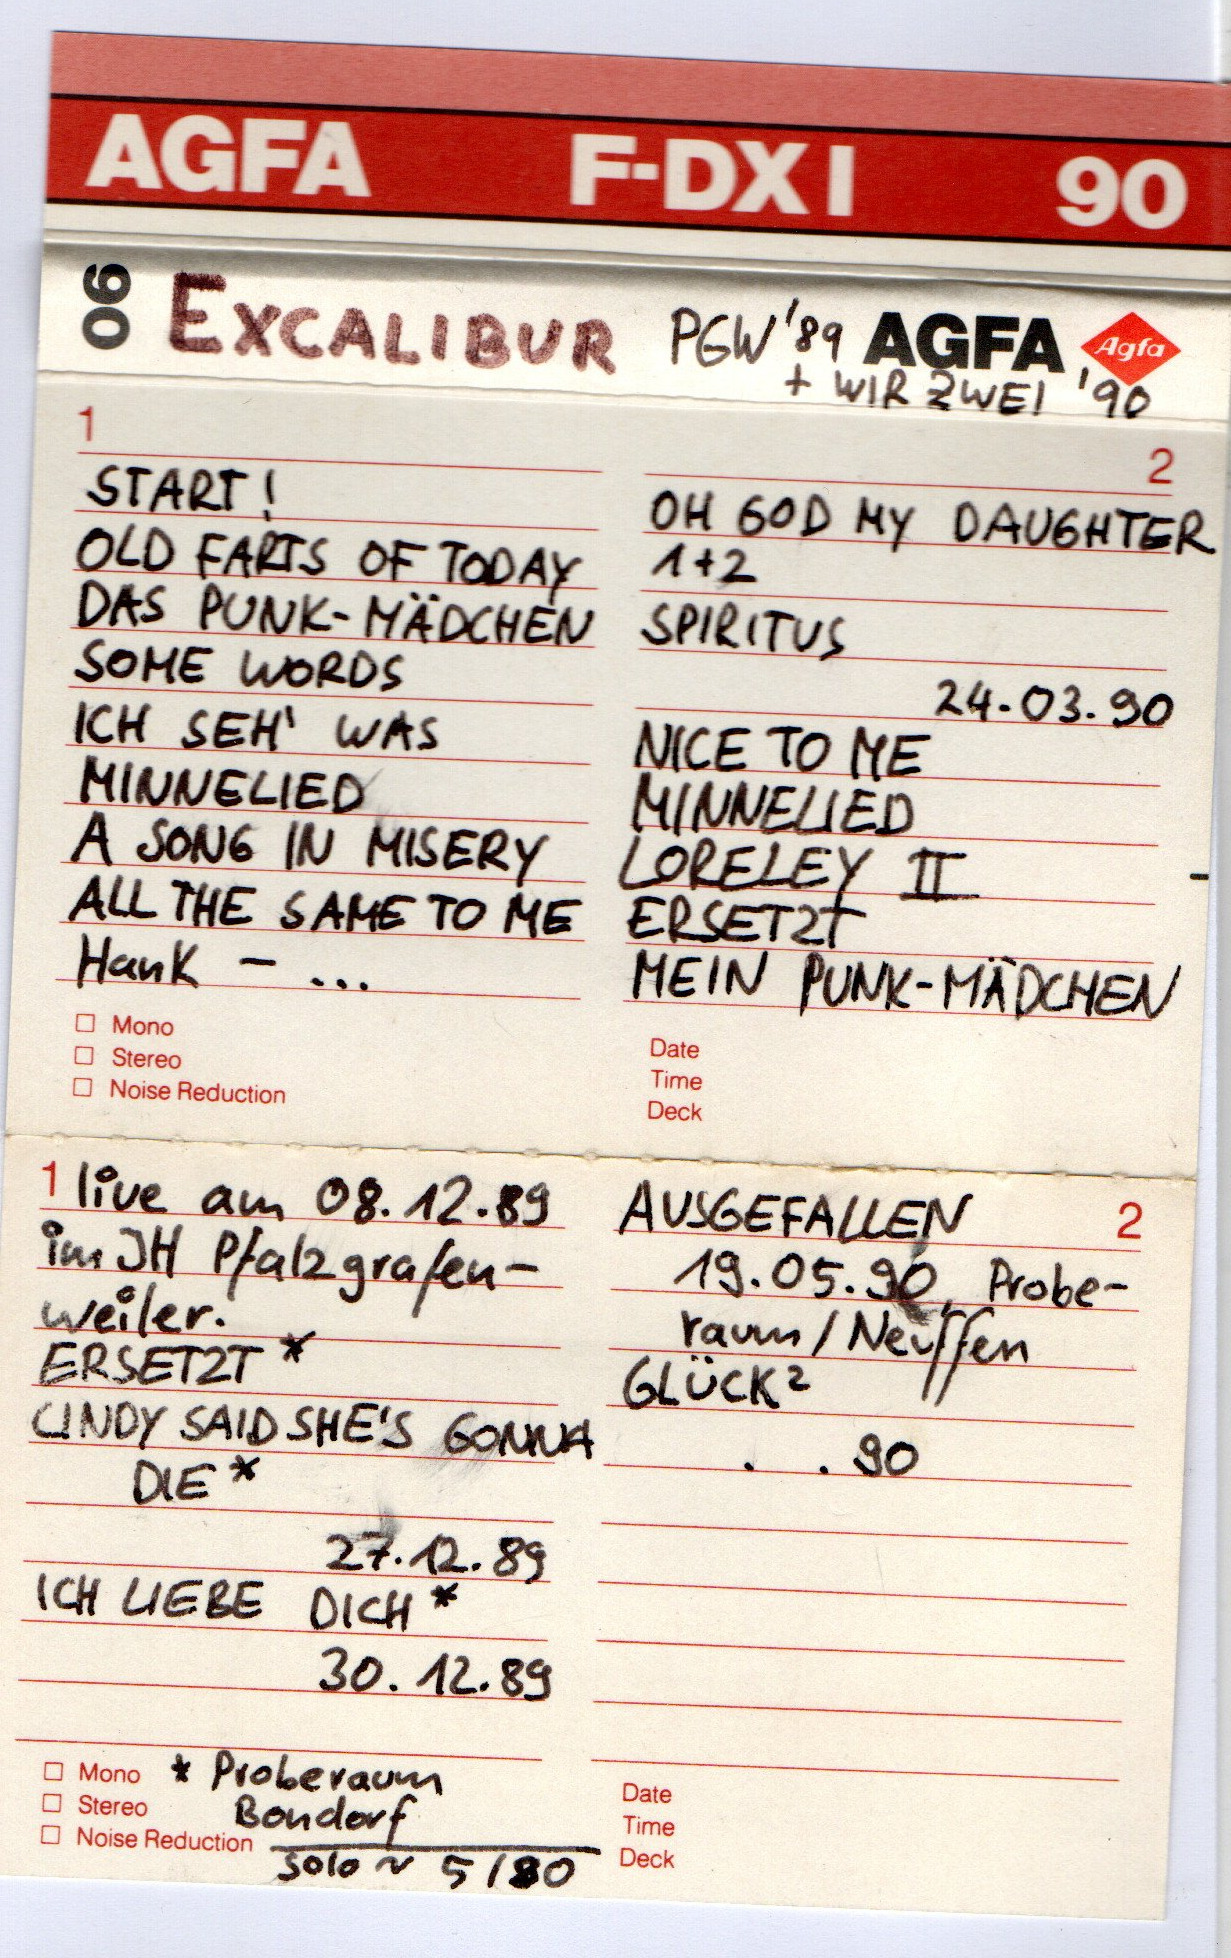 AGFA F-DX I 90
90 EXCALIBUR PGW '89 AGFA Agfa
+ WIR ZWEI '90
1
START!
OLD FARTS OF TODAY
DAS PUNK-MÄDCHEN
SOME WORDS
ICH SEH' WAS
MINNELIED
A SONG IN MISERY
ALL THE SAME TO ME
Hank - ...
Mono
Stereo
Noise Reduction
2
OH GOD MY DAUGHTER
1+2
SPIRITUS
24.03.90
NICE TO ME
MINNELIED
LORELEY II
ERSETZT
MEIN PUNK-MÄDCHEN
Date
Time
Deck
1 live am 08.12.89
im JH Pfalzgrafen-
weiler.
ERSETZT *
CINDY SAID SHE'S GONNA
DIE *
27.12.89
ICH LIEBE DICH *
30.12.89
Mono * Proberaum
Stereo Bondorf
Noise Reduction
solo ~ 5/90
AUSGEFALLEN 2
19.05.90, Probe-
raum / Neuffen
GLÜCK²
. . 90
Date
Time
Deck